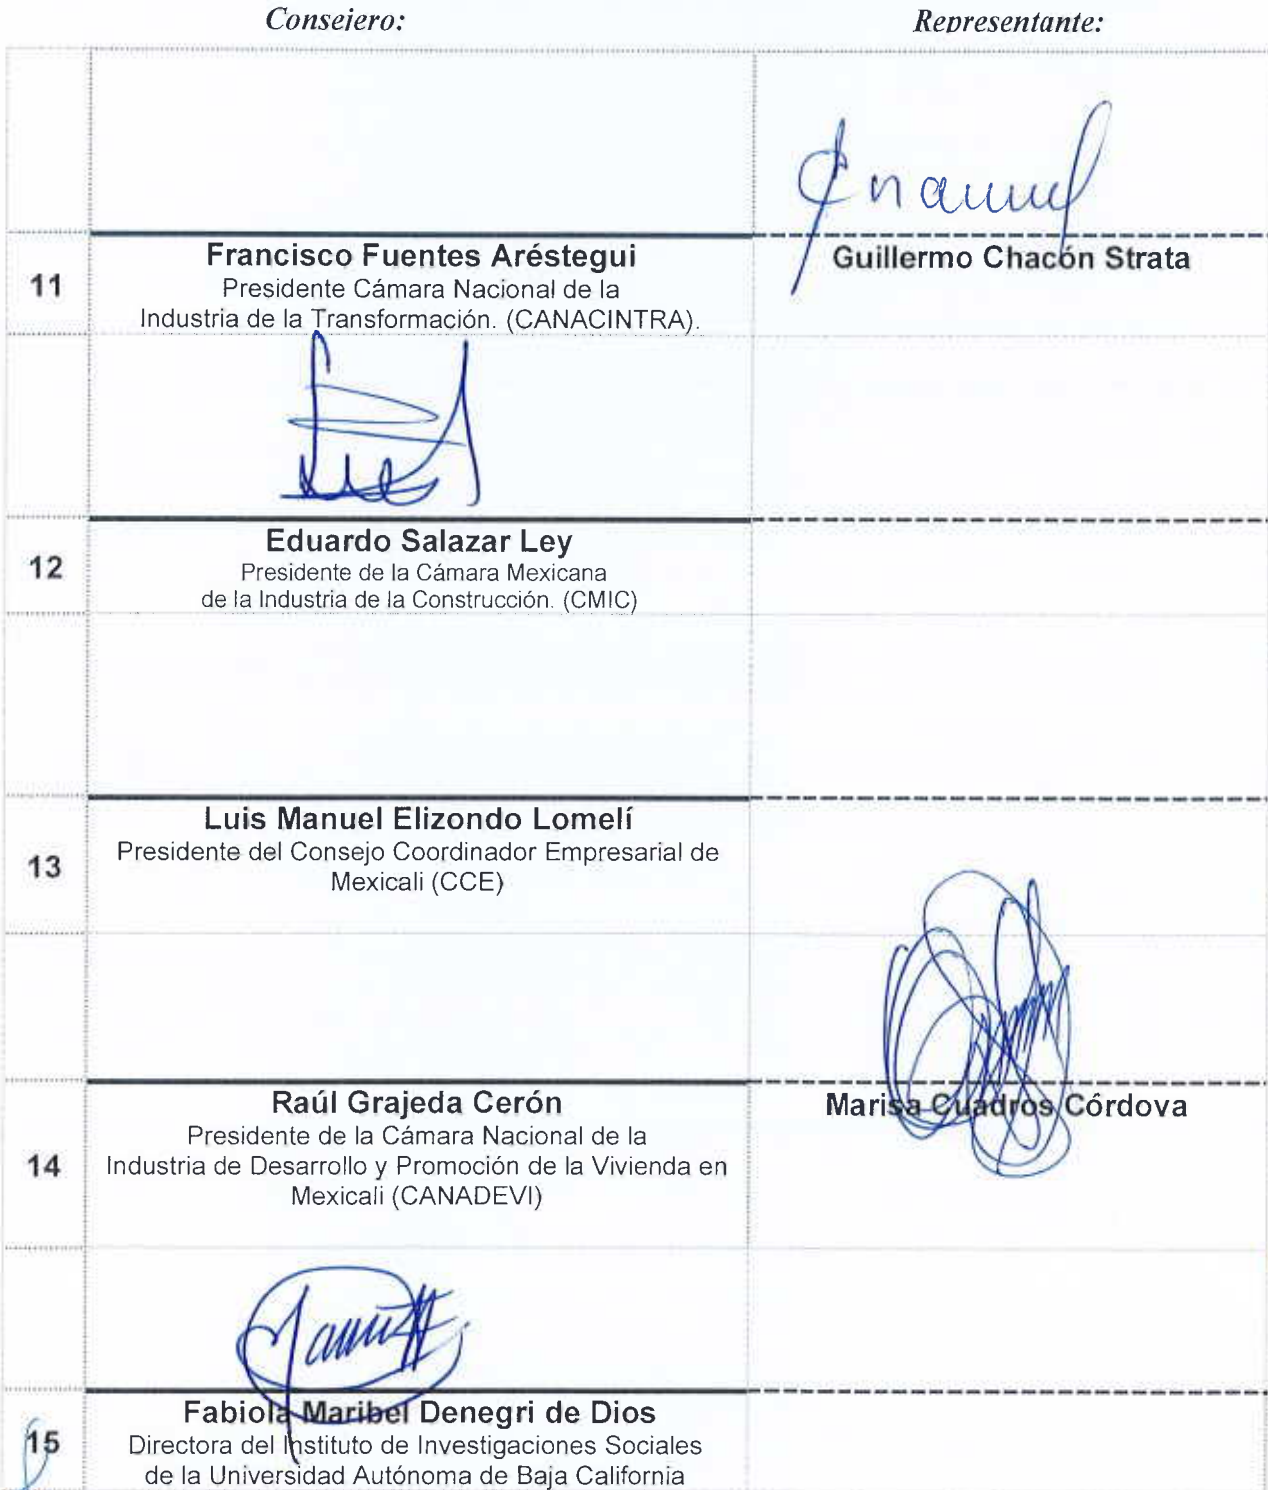 Consejero:
Representante:
11
Francisco Fuentes Aréstegui
Presidente Cámara Nacional de la
Industria de la Transformación. (CANACINTRA).
Guillermo Chacón Strata
12
Eduardo Salazar Ley
Presidente de la Cámara Mexicana
de la Industria de la Construcción. (CMIC)
13
Luis Manuel Elizondo Lomelí
Presidente del Consejo Coordinador Empresarial de
Mexicali (CCE)
14
Raúl Grajeda Cerón
Presidente de la Cámara Nacional de la
Industria de Desarrollo y Promoción de la Vivienda en
Mexicali (CANADEVI)
Marisa Cuadros Córdova
15
Fabiola Maribel Denegri de Dios
Directora del Instituto de Investigaciones Sociales
de la Universidad Autónoma de Baja California